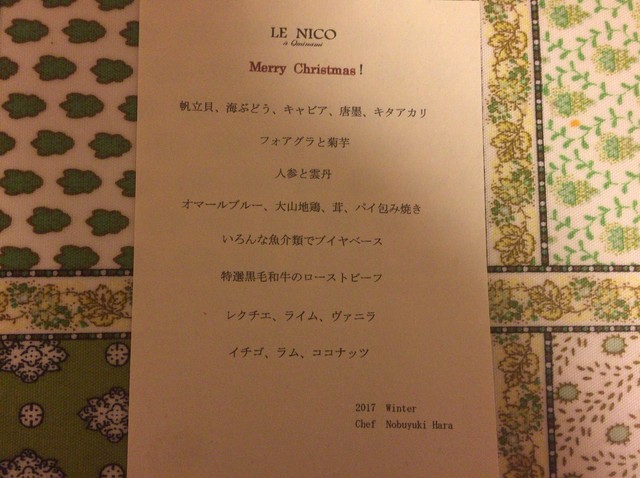 LE NICO
à Ouémami
Merry Christmas!
帆立貝、海ぶどう、キャビア、唐墨、キタアカリ
フォアグラと菊芋
人参と雲丹
オマールブルー、大山地鶏、茸、パイ包み焼き
いろんな魚介類でブイヤベース
特選黒毛和牛のローストビーフ
レクチエ、ライム、ヴァニラ
イチゴ、ラム、ココナッツ
2017 Winter
Chef Nobuyuki Hara